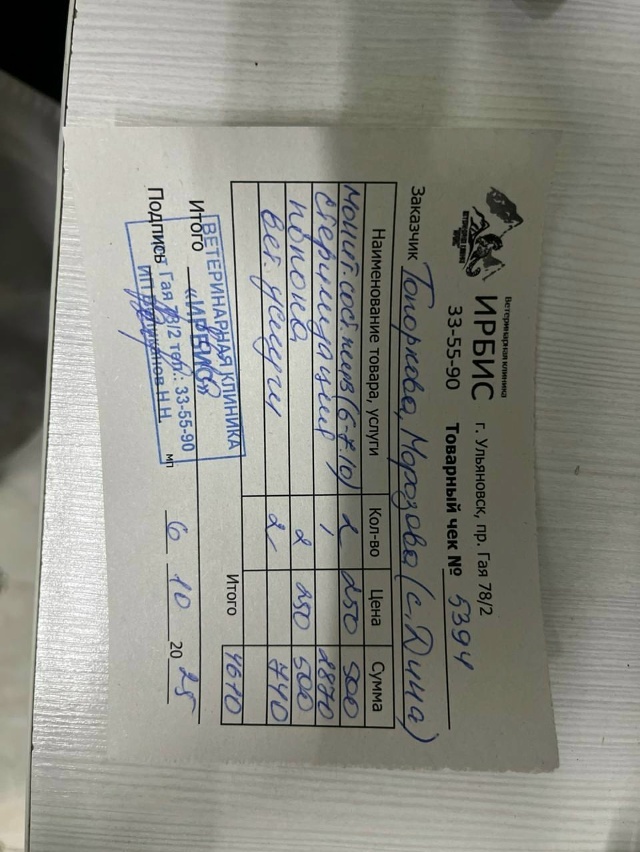 Ветеринарная клиника
ИРБИС
33-55-90
г. Ульяновск, пр. Гая 78/2
Товарный чек № 5394
Заказчик Топоркова, Морозова (с. Дина)
Наименование товара, услуги Кол-во Цена Сумма
монит. сост. жив (6-7.10) 2 250 500
стерилизация 1 2870
попона 2 250 500
вет. услуги 2 740
Итого 4610
Итого
Подпись
ВЕТЕРИНАРНАЯ КЛИНИКА
«ИРБИС»
Гая 78/2 тел.: 33-55-90
ИП Н.Н.
мп 6 10 20 25